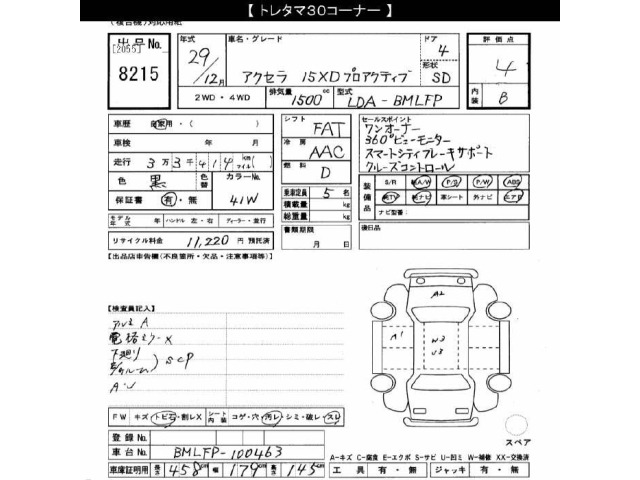 【 トレタマ30コーナー 】
(複合機)対応用紙
出品No.
[2055]
8215
年式
29
12月
車名・グレード
アクセラ 15XDプロアクティブ
ドア
4
形状
SD
2WD・4WD
排気量
1500cc
型式
LDA-BMLFP
評価点
4
内装
B
車歴
自家用・( )
車検
年 月
走行
3万3千414km(マイル)( )
色
黒
色替
カラーNo.
41W
保証書
有・無
モデル年式
年
ハンドル 左・右
ディーラー・並行
リサイクル料金
11,220 円 預託済
シフト
FAT
冷房
AAC
燃料
D
乗車定員
5 名
積載量
kg
総重量
kg
書類期限
月 日
セールスポイント
ワンオーナー
360°ビューモニター
スマートシティブレーキサポート
クルーズコントロール
装備品
S/R 純A/W P/S P/W ABS
純TV 純ナビ 革シート 外ナビ エアB
ナビ型番:
後日品
【出品店申告欄(不良箇所・欠品・注意事項等)】
【検査員記入】
アルミ A
電格ミラーX
下廻り
scp
A・U
A2
A1
W3
U3
FW キズ トビ石・割レX
シート内装
コゲ・穴 汚レ シミ・破レ スレ
登録No.
車台No.
BMLFP-100463
車庫証明用
長さ 458cm 幅 179cm 高さ 145cm
スペア
A-キズ C-腐食 E-エクボ S-サビ U-凹ミ W-補修 XX-交換済
工具 有・無 ジャッキ 有・無